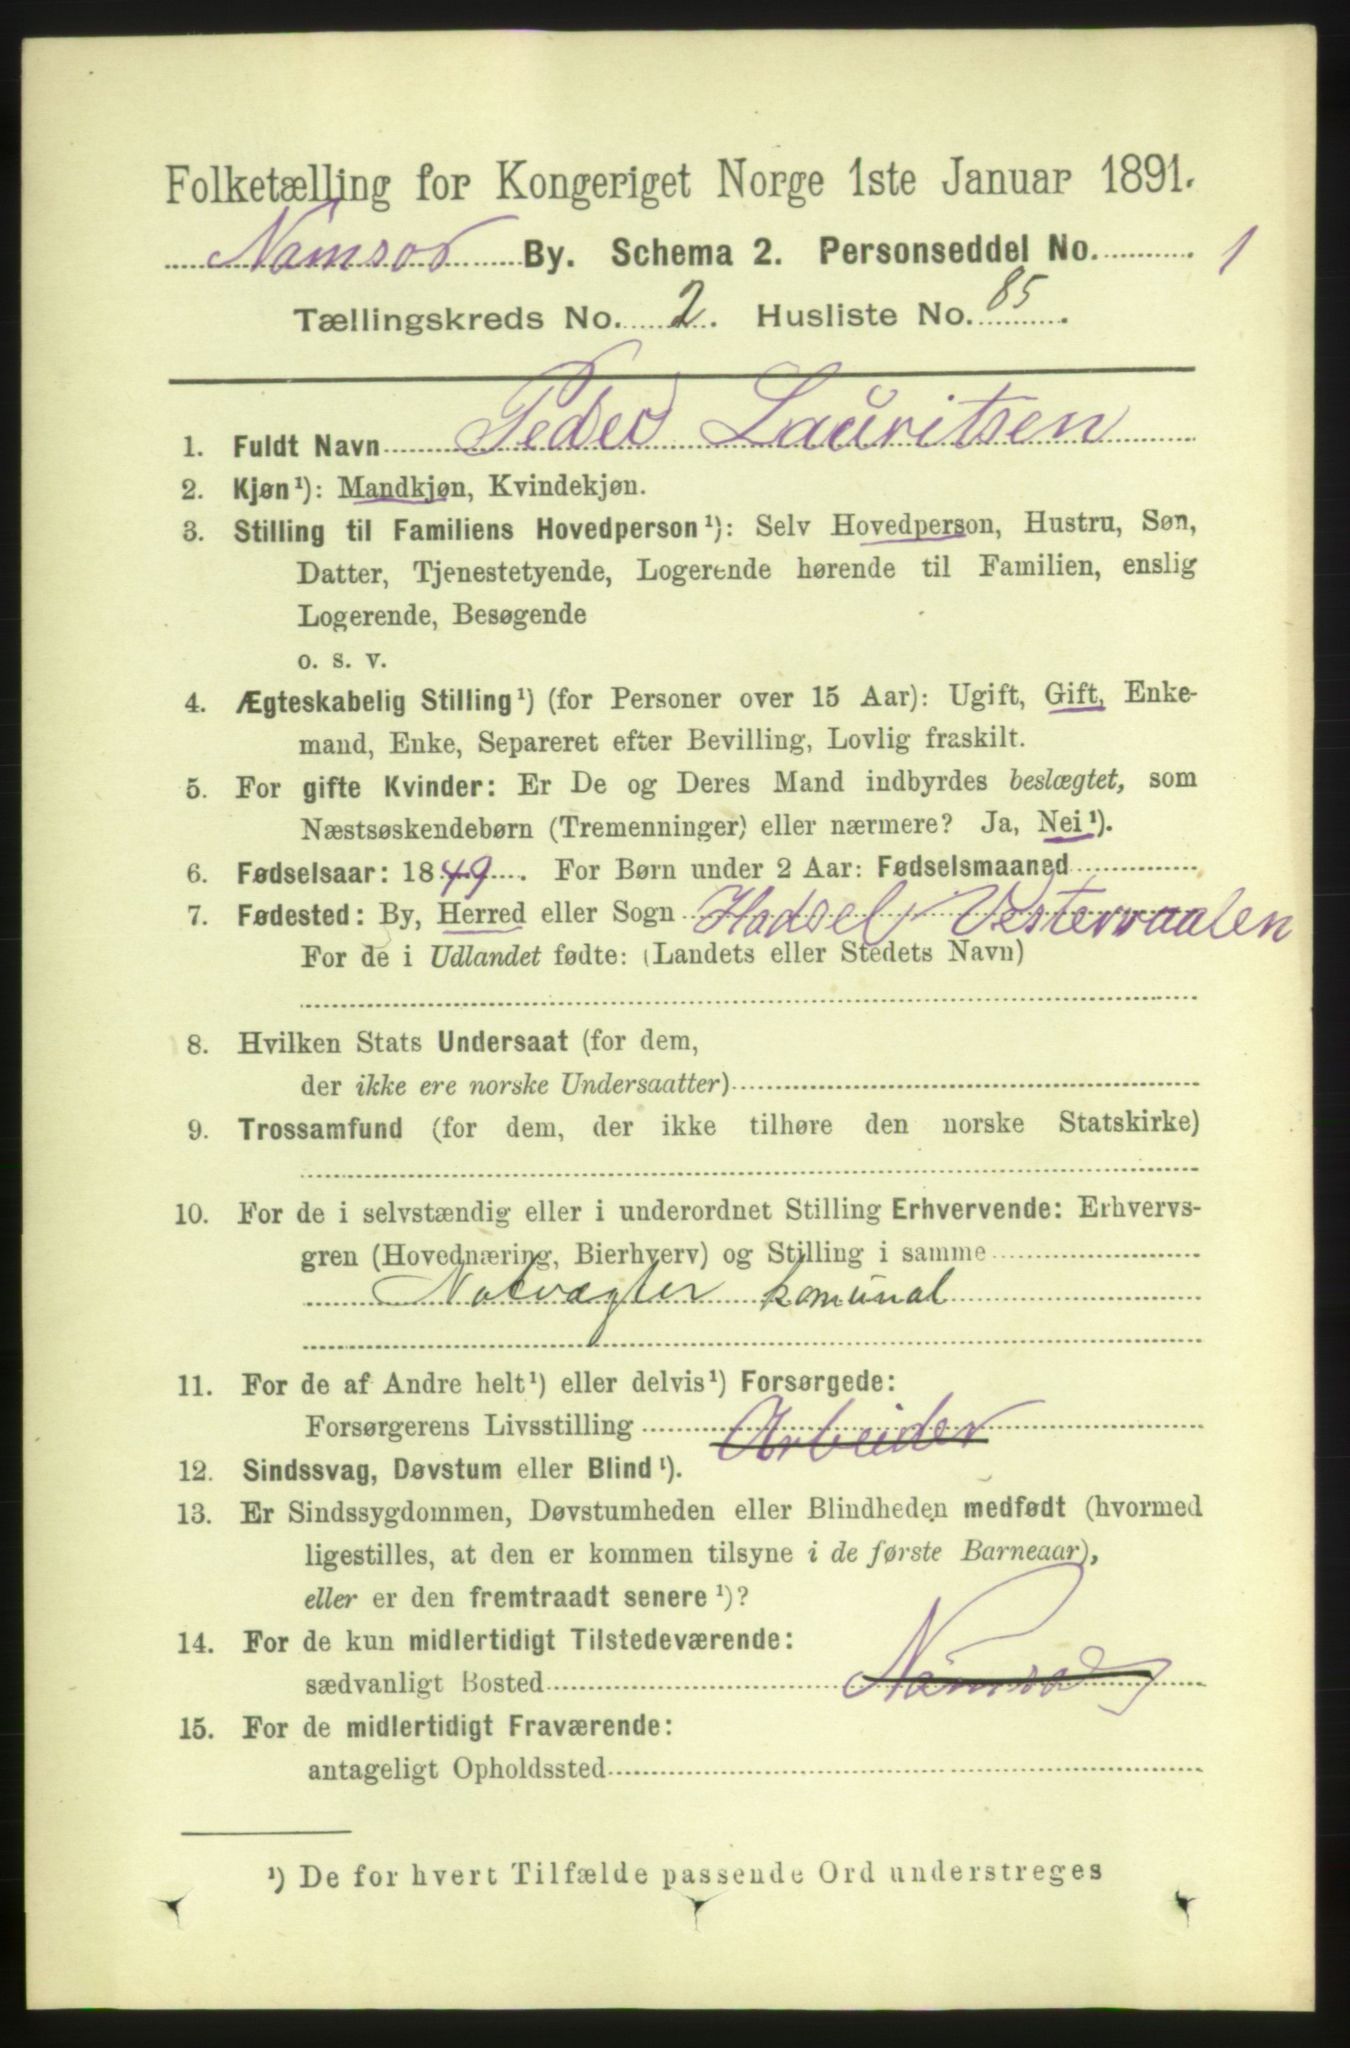 Folketælling for Kongeriget Norge 1ste Januar 1891.
Namsos By. Schema 2. Personseddel No. 1
Tællingskreds No. 2. Husliste No. 85.
1. Fuldt Navn Peder Lauritsen
2. Kjøn¹): Mandkjøn, Kvindekjøn.
3. Stilling til Familiens Hovedperson¹): Selv Hovedperson, Hustru, Søn,
Datter, Tjenestetyende, Logerende hørende til Familien, enslig
Logerende, Besøgende
o. s. v.
4. Ægteskabelig Stilling¹) (for Personer over 15 Aar): Ugift, Gift, Enke-
mand, Enke, Separeret efter Bevilling, Lovlig fraskilt.
5. For gifte Kvinder: Er De og Deres Mand indbyrdes beslægtet, som
Næstsøskendebørn (Tremenninger) eller nærmere? Ja, Nei¹).
6. Fødselsaar: 1849. For Børn under 2 Aar: Fødselsmaaned
7. Fødested: By, Herred eller Sogn Hadsel, Vesteraalen
For de i Udlandet fødte: (Landets eller Stedets Navn)
8. Hvilken Stats Undersaat (for dem,
der ikke ere norske Undersaatter)
9. Trossamfund (for dem, der ikke tilhøre den norske Statskirke)
10. For de i selvstændig eller i underordnet Stilling Erhvervende: Erhvervs-
gren (Hovednæring, Bierhverv) og Stilling i samme
Natvægter komunal
11. For de af Andre helt¹) eller delvis¹) Forsørgede:
Forsørgerens Livsstilling Arbeider
12. Sindssvag, Døvstum eller Blind¹).
13. Er Sindssygdommen, Døvstumheden eller Blindheden medfødt (hvormed
ligestilles, at den er kommen tilsyne i de første Barneaar),
eller er den fremtraadt senere¹)?
14. For de kun midlertidigt Tilstedeværende:
sædvanligt Bosted Namsos
15. For de midlertidigt Fraværende:
antageligt Opholdssted
¹) De for hvert Tilfælde passende Ord understreges